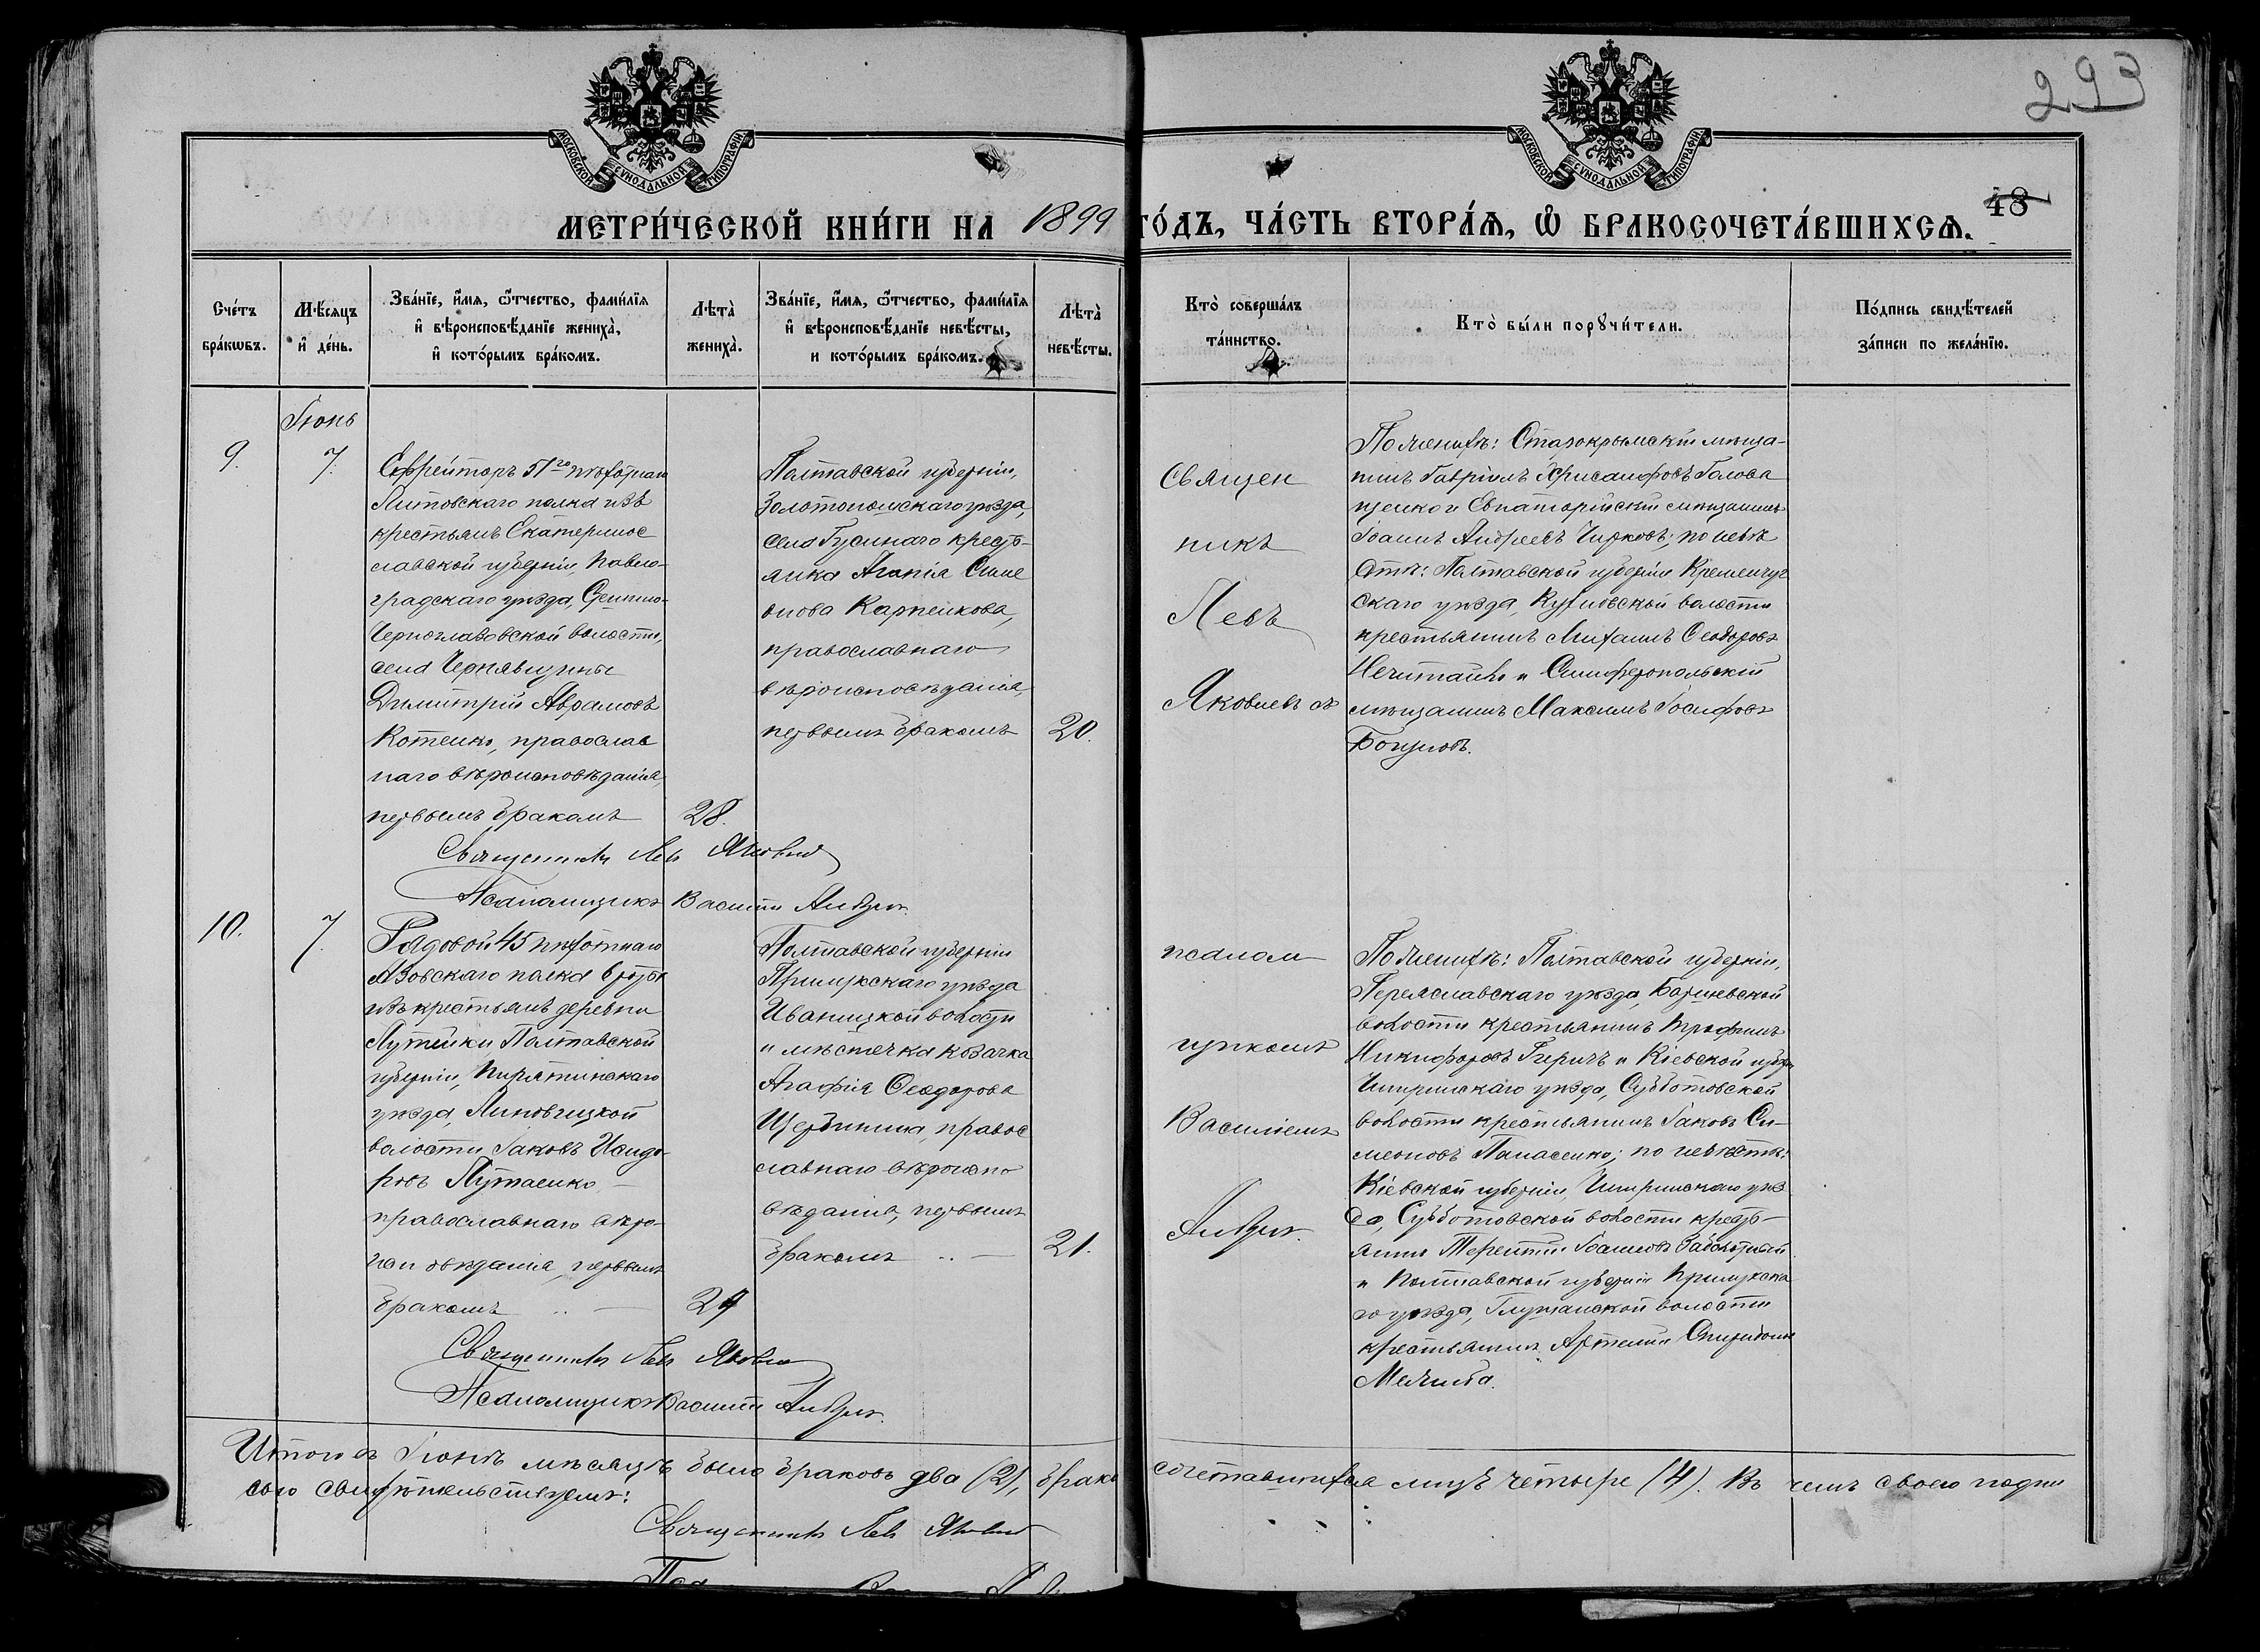 293
МОСКОВСКОЙ СѴНОДАЛЬНОЙ ТИПОГРАФІИ
МОСКОВСКОЙ СѴНОДАЛЬНОЙ ТИПОГРАФІИ
48
МЕТРИ́ЧЕСКОЙ КНИ́ГИ НА 1899 ГО́ДЪ, ЧА́СТЬ ВТОРА́Я, Ѽ БРАКОСОЧЕТА́ВШИХСЯ.
Сче́тъ
бра́кѡвъ.
Мѣ́сяцъ
и҆ де́нь.
Зва́нїе, и҆́мѧ, ѻ҆́тчество, фамѝлїѧ
и҆ вѣроисповѣ́данїе жениха̀,
и҆ кото́рымъ бра́комъ.
Лѣта̀
жениха̀.
Зва́нїе, и҆́мѧ, ѻ҆́тчество, фамѝлїѧ
и҆ вѣроисповѣ́данїе невѣ́сты,
и кото́рымъ бра́комъ.
Лѣта̀
невѣ́сты.
Кто̀ соверша́лъ
та́инство.
Кто̀ бы́ли порꙋчи́тели.
По́дпись свидѣ́телей
за́писи по жела́нїю.
Іюнь
9.
7.
Ефрейторъ 51го пѣхотнаго
Литовскаго полка изъ
крестьянъ Екатеринос
лавской губерніи, Павло-
градскаго уѣзда,
Черноглазовской волости,
села Чернявщины
Димитрій Аврамовъ
Котенко, православ
наго вѣроисповѣданія,
первымъ бракомъ
28.
Полтавской губерніи,
Золотоношскаго уѣзда,
села Гусинаго кресть-
янка Агапія Симе
онова Карпенкова,
православнаго
вѣроисповѣданія,
первымъ бракомъ
20.
Священ
никъ
Левъ
Яковлевъ съ
По женихѣ: Старокрымскій мѣща-
нинъ Гавріилъ Хрисанфовъ Голова
щенко и Евпаторійскій мѣщанинъ
Іоаннъ Андреевъ Чирковъ; по невѣ
стѣ: Полтавской губерніи Кременчуг
скаго уѣзда, волости
крестьянинъ Михаилъ Ѳеодоровъ
Нечитайло и Симферопольскій
мѣщанинъ Максимъ Іосифовъ
Священникъ Левъ Яковлевъ
Псаломщикъ Василій
10.
7.
Рядовой 45 пѣхотнаго
Азовскаго полка 6 роты
изъ крестьянъ деревни
Лутайки, Полтавской
губерніи, Пирятинскаго
уѣзда,
волости Іаковъ Исидо
ровъ Лутаенко
православнаго вѣро-
исповѣданія, первымъ
бракомъ
29
Полтавской губерніи
Прилукскаго уѣзда
Иваницкой волости
и мѣстечка козачка
Агафія Ѳеодорова
Щербинина, правос
лавнаго вѣроиспо
вѣданія, первымъ
бракомъ
21.
псалом
щикомъ
Василіемъ
По женихѣ: Полтавской губерніи,
Переяславскаго уѣзда, Барышевской
волости крестьянинъ Трофимъ
Никифоровъ и Кіевской губерніи
Чигиринскаго уѣзда, Субботовской
волости крестьянинъ Іаковъ Си-
меоновъ Панасенко; по невѣстѣ:
Кіевской губерніи Чигиринскаго уѣз
да, Субботовской волости кресть-
янинъ Терентій Іоанновъ Заболотный
и Полтавской губерніи Прилукска
го уѣзда, волости
крестьянинъ Артемій Спиридоновъ
Священникъ Левъ Яковлевъ
Псаломщикъ Василій
Итого въ Іюнѣ мѣсяцѣ было браковъ два (2), брако сочетавшихся лицъ четыре (4). Въ чемъ своею подпи
сью свидѣтельствуемъ:
Священникъ Левъ Яковлевъ